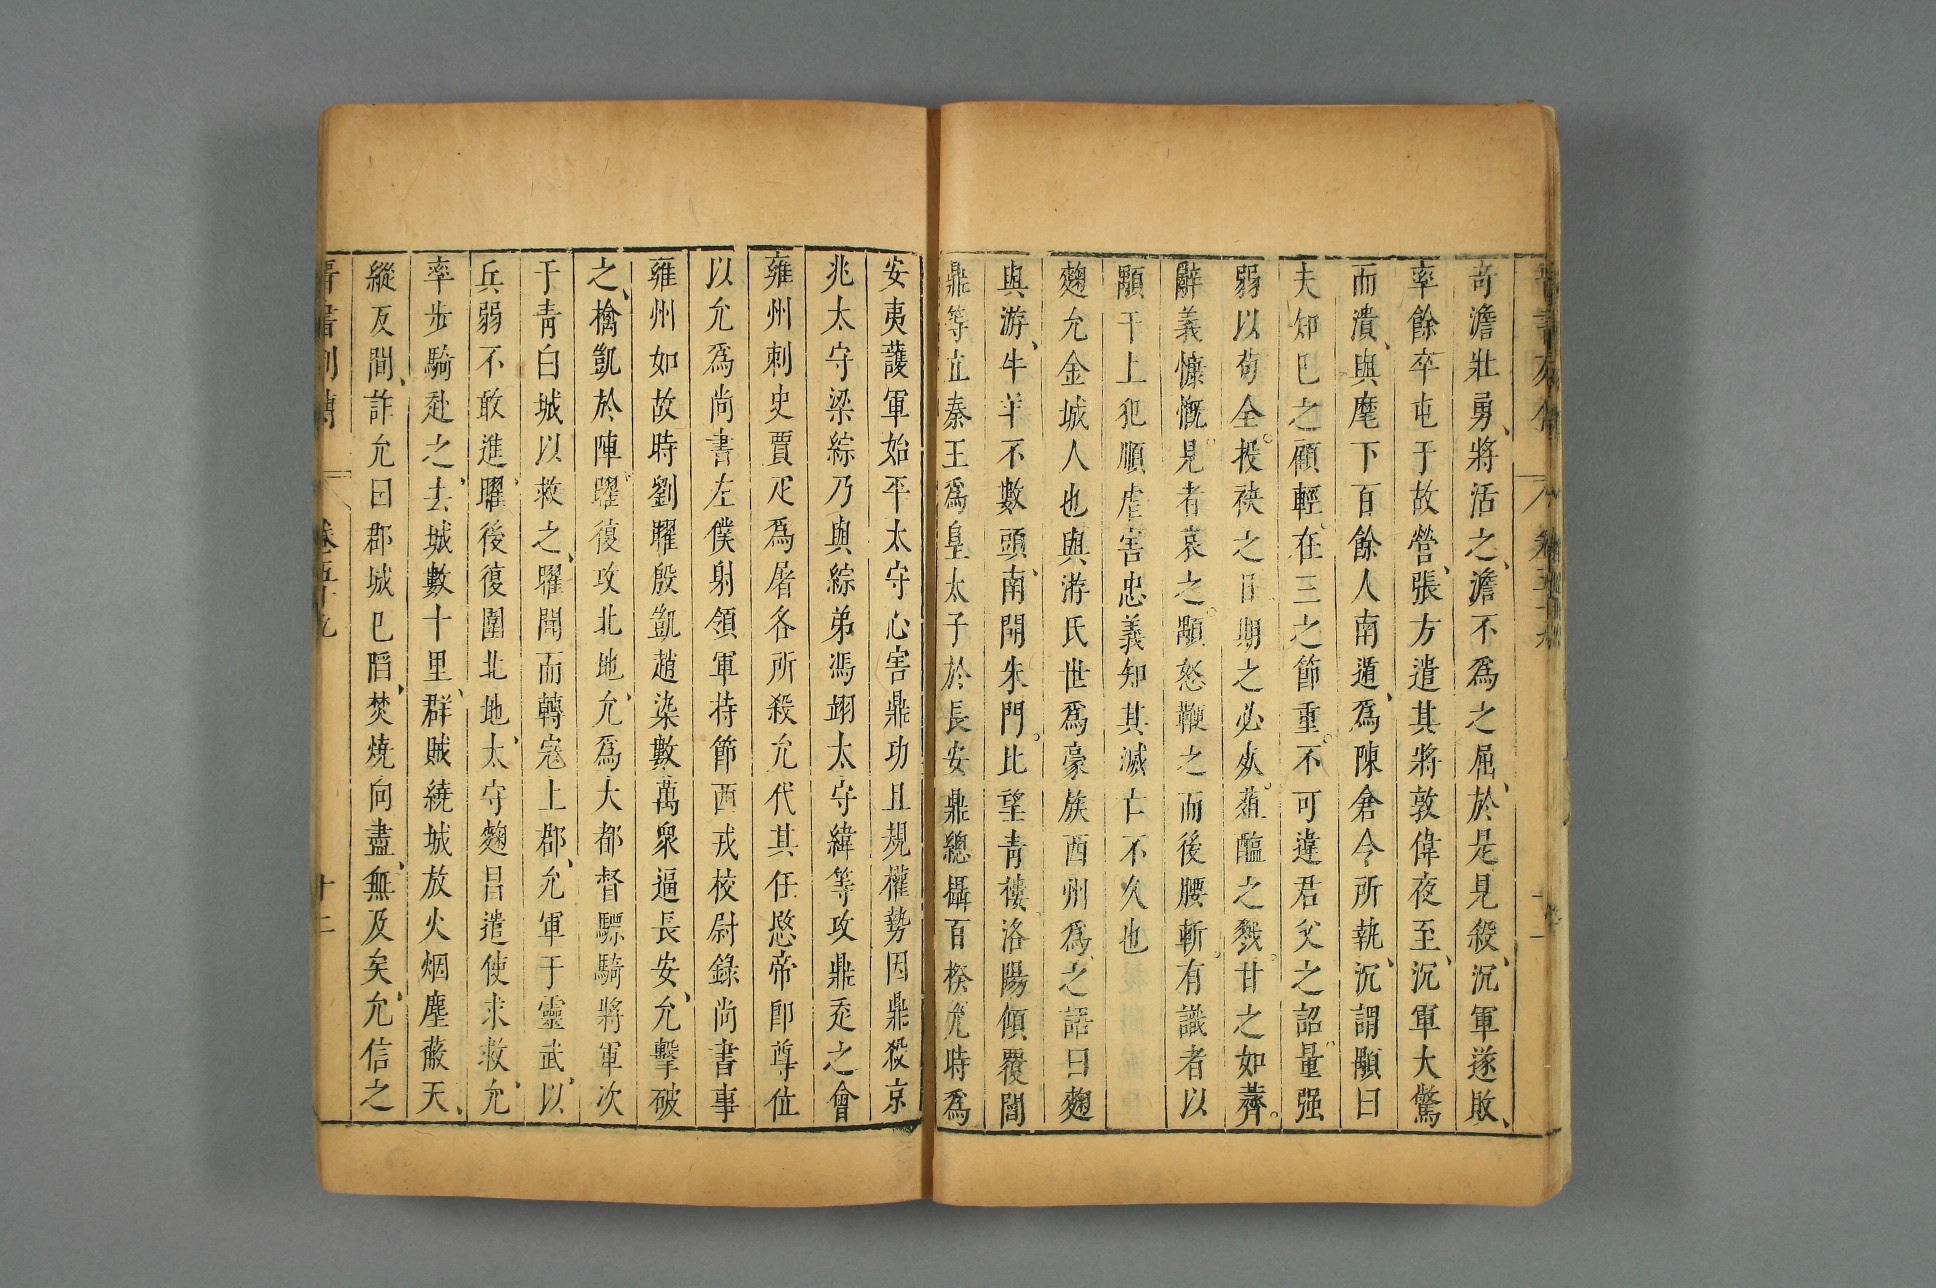 奇澹壯勇、將活之、澹不爲之屈、於是見殺、沉軍遂敗、
率餘卒屯于故營、張方遣其將敦偉夜至、沉軍大驚
而潰、與麾下百餘人南遁、爲陳倉令所執、沉謂顒曰
夫知已之顧輕。在三之節重。不可違君父之詔。量强
弱以苟全。投袂之日。期之必𣦸。葅醢之戮。甘之如薺。
辭義慷慨。見者哀之。顒怒鞭之而後腰斬。有識者以
顒干上犯順虐害忠義知其滅亡不久也
麴允金城人也與游氏世爲豪族西州爲之語曰麴
與游、牛羊不數頭、南開朱門。北望青樓。洛陽傾覆閻
鼎等立秦王爲皇太子於長安鼎總攝百揆允時爲
安夷護軍始平太守心害鼎功且規權勢因鼎殺京
兆太守梁綜乃與綜弟馮翊太守緯等攻鼎走之會
雍州刺史賈疋爲屠各所殺允代其任愍帝卽尊位
以允爲尚書左僕射領軍持節西戎校尉錄尚書事
雍州如故時劉曜殷凱趙染數萬衆逼長安、允擊破
之、檎凱於陣。曜復攻北地、允爲大都督驃騎將軍次
于青白城以救之、曜聞而轉寇上郡、允軍于靈武、以
兵弱不敢進、曜後復圍北地、太守麴昌遣使求救、允
率步騎赴之、去城數十里、群賊繞城放火烟塵蔽天、
縱反間、詐允曰郡城已䧟、焚燒向盡、無及矣、允信之
晉書列傳 卷五十九 十二